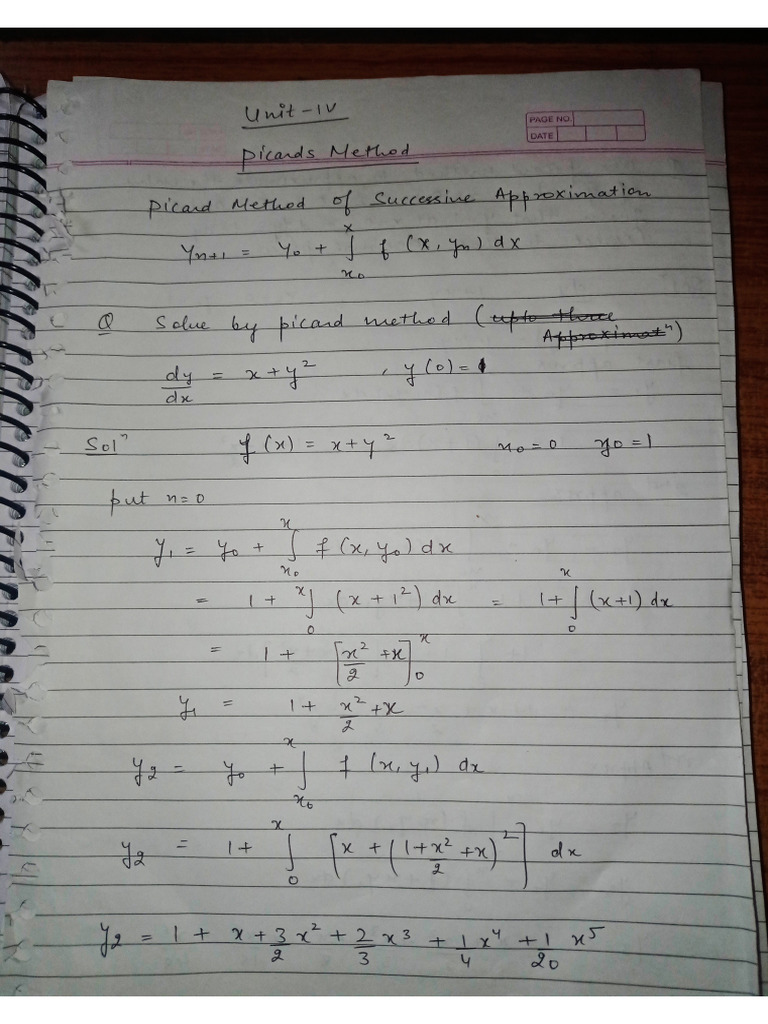 Unit-IV
PAGE NO.
DATE
Picards Method
Picard Method of Successive Approximation
yn+1 = y0 + ∫x0^x f(x, yn) dx
Q Solve by picard method (upto three Approximatⁿ)
dy/dx = x+y², y(0)=1
Solⁿ f(x) = x+y² x0=0 y0=1
put n=0
y1 = y0 + ∫x0^x f(x, y0) dx
= 1 + ∫0^x (x+1²) dx = 1+∫0^x (x+1) dx
= 1 + [x²/2 + x]0^x
y1 = 1 + x²/2 + x
y2 = y0 + ∫x0^x f(x, y1) dx
y2 = 1+ ∫0^x [x + (1+x²/2 + x)²] dx
y2 = 1 + x + 3/2 x² + 2/3 x³ + 1/4 x⁴ + 1/20 x⁵